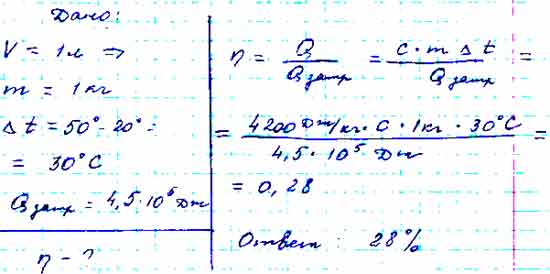 Дано:
V = 1л ⇒
m = 1кг
Δt = 50° - 20° =
= 30°C
Qзатр = 4,5·10⁵ Дж
η - ?
η = Q/Qзатр = c·mΔt/Qзатр =
= 4200 Дж/кг·C · 1кг · 30°C / 4,5·10⁵ Дж =
= 0,28
Ответ: 28%